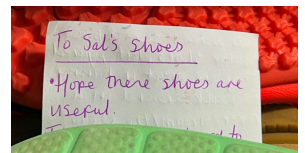 To Sal's shoes
• Hope there shoes are
useful.
to